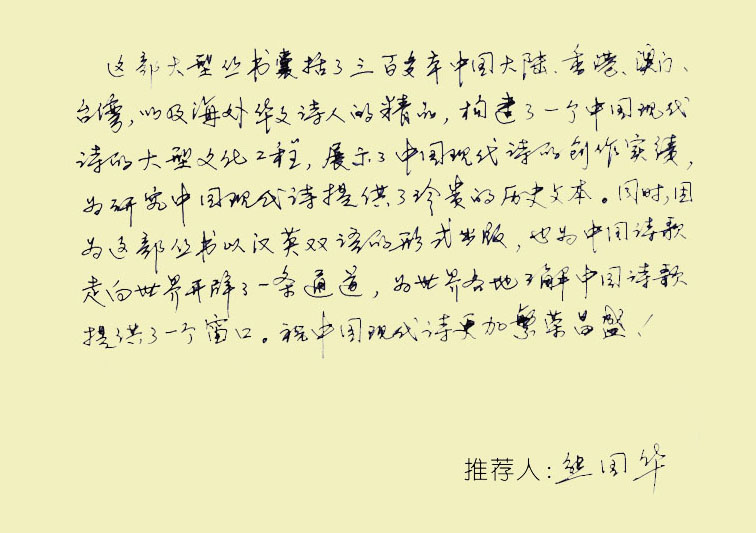 这部大型丛书囊括了三百多年中国大陆、香港、澳门、
台湾，以及海外华文诗人的精品，构建了一个中国现代
诗的大型文化工程，展示了中国现代诗的创作实绩，
为研究中国现代诗提供了珍贵的历史文本。同时，因
为这部丛书以汉英双语的形式出版，也为中国诗歌
走向世界开辟了一条通道，为世界各地了解中国诗歌
提供了一个窗口。祝中国现代诗更加繁荣昌盛！
推荐人：熊国华